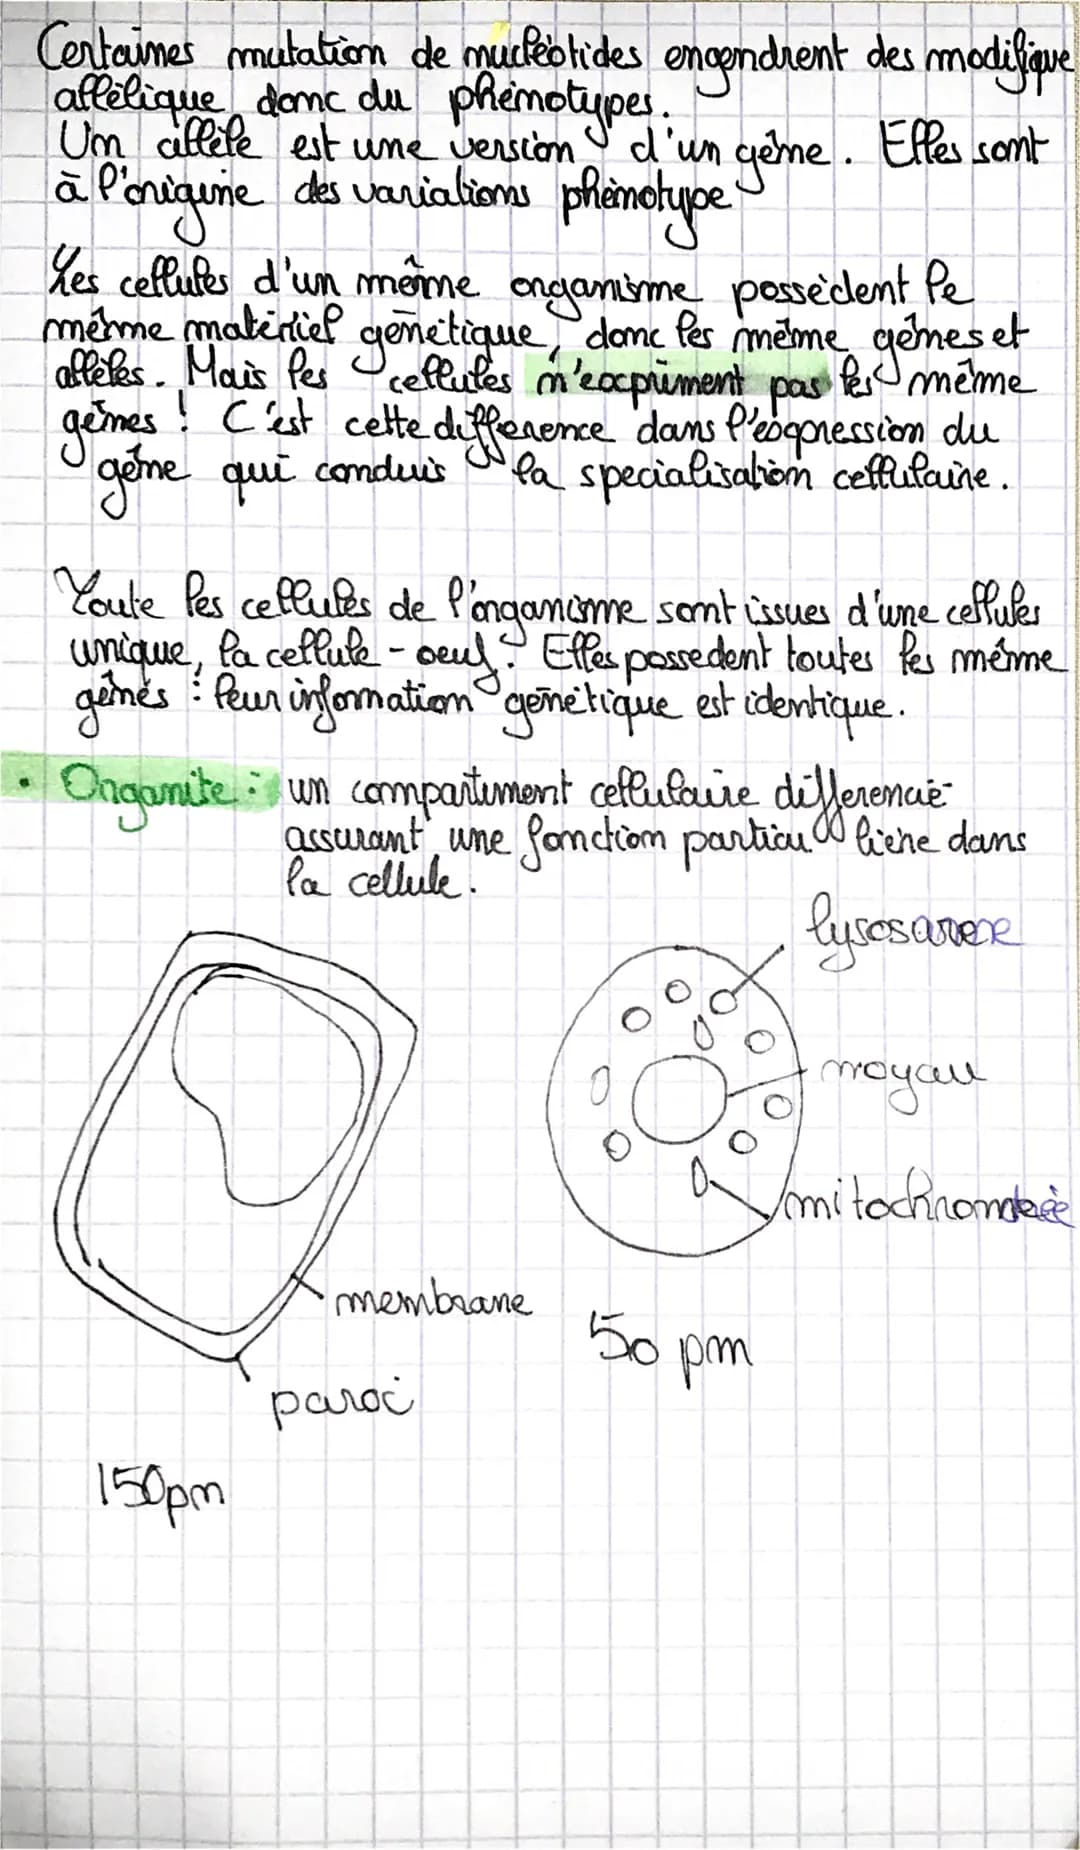 Certaines mutation de nucléotides engendrent des modifique
allélique donc du phénotypes.
Un allèle est une version d'un gène. Elles sont
à l'origine des variations phénotype
Les cellules d'un même organisme possèdent le
même matériel génétique, donc les même gènes et
allèles. Mais les cellules n'expriment pas les même
gènes ! C'est cette difference dans l'expression du
gène qui conduis la specialisation cellulaire.
Toute les cellules de l'organisme sont issues d'une cellules
unique, la cellule-oeuf. Elles possedent toutes les même
gènes : leur information génétique est identique.
• Organite : un compartiment cellulaire differencié
assurant une fonction particulière dans
la cellule.
noyau
membrane
50 pm
paroi
150pm